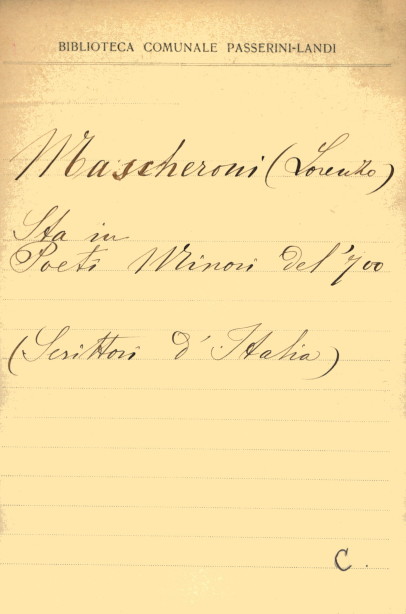 BIBLIOTECA COMUNALE PASSERINI-LANDI
Mascheroni (Lorenzo)
Sta in
Poeti Minori del '700
(Scrittori d'Italia)
C.